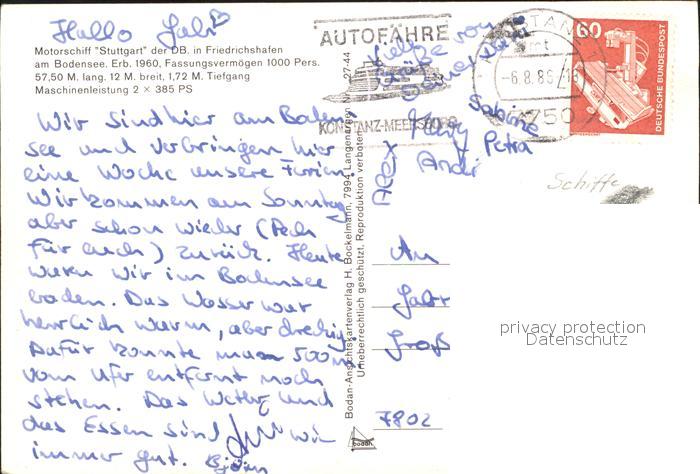 Hallo Gabi
Motorschiff "Stuttgart" der DB. in Friedrichshafen
am Bodensee. Erb. 1960, Fassungsvermögen 1000 Pers.
57,50 M. lang. 12 M. breit, 1,72 M. Tiefgang
Maschinenleistung 2 × 385 PS
Wir sind hier am Boden
see und verbringen hier
eine Woche unsere Ferien.
Wir kommen am Sonntag
aber schon wieder (Pech
für euch) zurück. Heute
waren wir im Bodensee
baden. Das Wasser war
herrlich warm, aber dreckig.
Dafür konnte man 500m
vom Ufer entfernt noch
stehen. Das Wetter und
das Essen sind wie
immer gut. Björn
Bodan-Ansichtskartenverlag H. Bockelmann, 7994 Langenargen Nr. 27-44
Urheberrechtlich geschützt. Reproduktion verboten
bodan
AUTOFÄHRE
KONSTANZ-MEERSBURG
-6.8.86-18
7750
60
DEUTSCHE BUNDESPOST
Grüße von
Sabine
Petra
Alex
Andi
Schiffe
An
Gabi
Groß
7802
privacy protection
Datenschutz